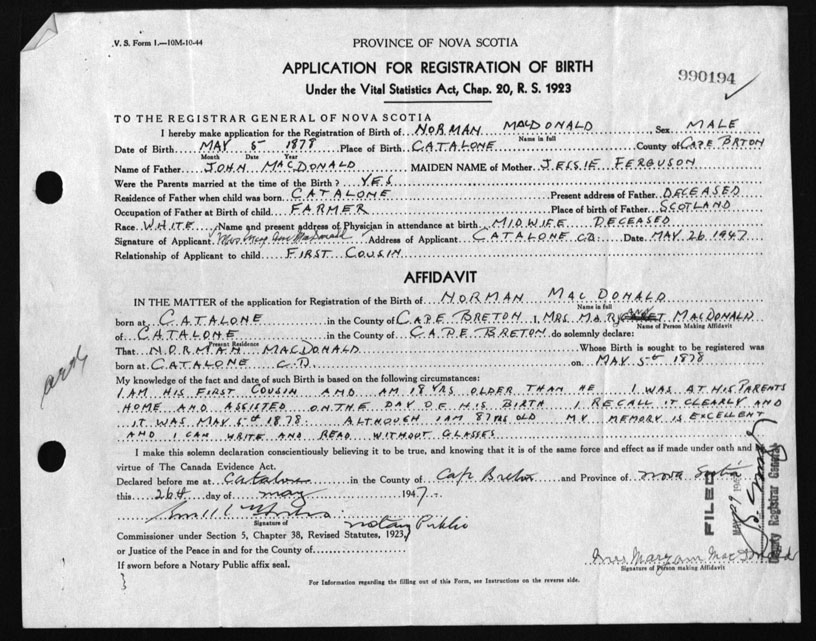 V. S. Form 1.—10M-10-44
PROVINCE OF NOVA SCOTIA
APPLICATION FOR REGISTRATION OF BIRTH
990194
Under the Vital Statistics Act, Chap. 20, R. S. 1923
TO THE REGISTRAR GENERAL OF NOVA SCOTIA
I hereby make application for the Registration of Birth of NORMAN MACDONALD Sex MALE
Name in full
Date of Birth MAY 5 1878 Place of Birth CATALONE County of CAPE BRTON
Month Date Year
Name of Father JOHN MACDONALD MAIDEN NAME of Mother JESSIE FERGUSON
Were the Parents married at the time of the Birth? YES
Residence of Father when child was born CATALONE Present address of Father DECEASED
Occupation of Father at Birth of child FARMER Place of birth of Father SCOTLAND
Race WHITE Name and present address of Physician in attendance at birth MIDWIFE DECEASED
Signature of Applicant Mrs Mary Ann MacDonald Address of Applicant CATALONE C.B. Date MAY 26 1947
Relationship of Applicant to child FIRST COUSIN
AFFIDAVIT
IN THE MATTER of the application for Registration of the Birth of NORMAN MACDONALD
Name in full
born at CATALONE in the County of CAPE BRETON I, MRS MARY ANN MACDONALD
Name of Person Making Affidavit
of CATALONE in the County of CAPE BRETON do solemnly declare:
Present Residence
That NORMAN MACDONALD Whose Birth is sought to be registered was
born at CATALONE C.B. on MAY 5th 1878
My knowledge of the fact and date of such Birth is based on the following circumstances:
I AM HIS FIRST COUSIN AND AM 18 YRS OLDER THAN HE I WAS AT HIS PARENTS
HOME AND ASSISTED ON THE DAY OF HIS BIRTH I RECALL IT CLEARLY AND
IT WAS MAY 5th 1878 ALTHOUGH I AM 87 YRS OLD MY MEMORY IS EXCELLENT
AND I CAN WRITE AND READ WITHOUT GLASSES
I make this solemn declaration conscientiously believing it to be true, and knowing that it is of the same force and effect as if made under oath and by
virtue of The Canada Evidence Act.
Declared before me at Catalone in the County of Cape Breton and Province of Nova Scotia
this 26th day of May 1947
Signature of Notary Public
Commissioner under Section 5, Chapter 38, Revised Statutes, 1923,
or Justice of the Peace in and for the County of
Mrs Mary ann MacDonald
Signature of Person making Affidavit
If sworn before a Notary Public affix seal.
For Information regarding the filling out of this Form, see Instructions on the reverse side.
FILED
County Registrar General